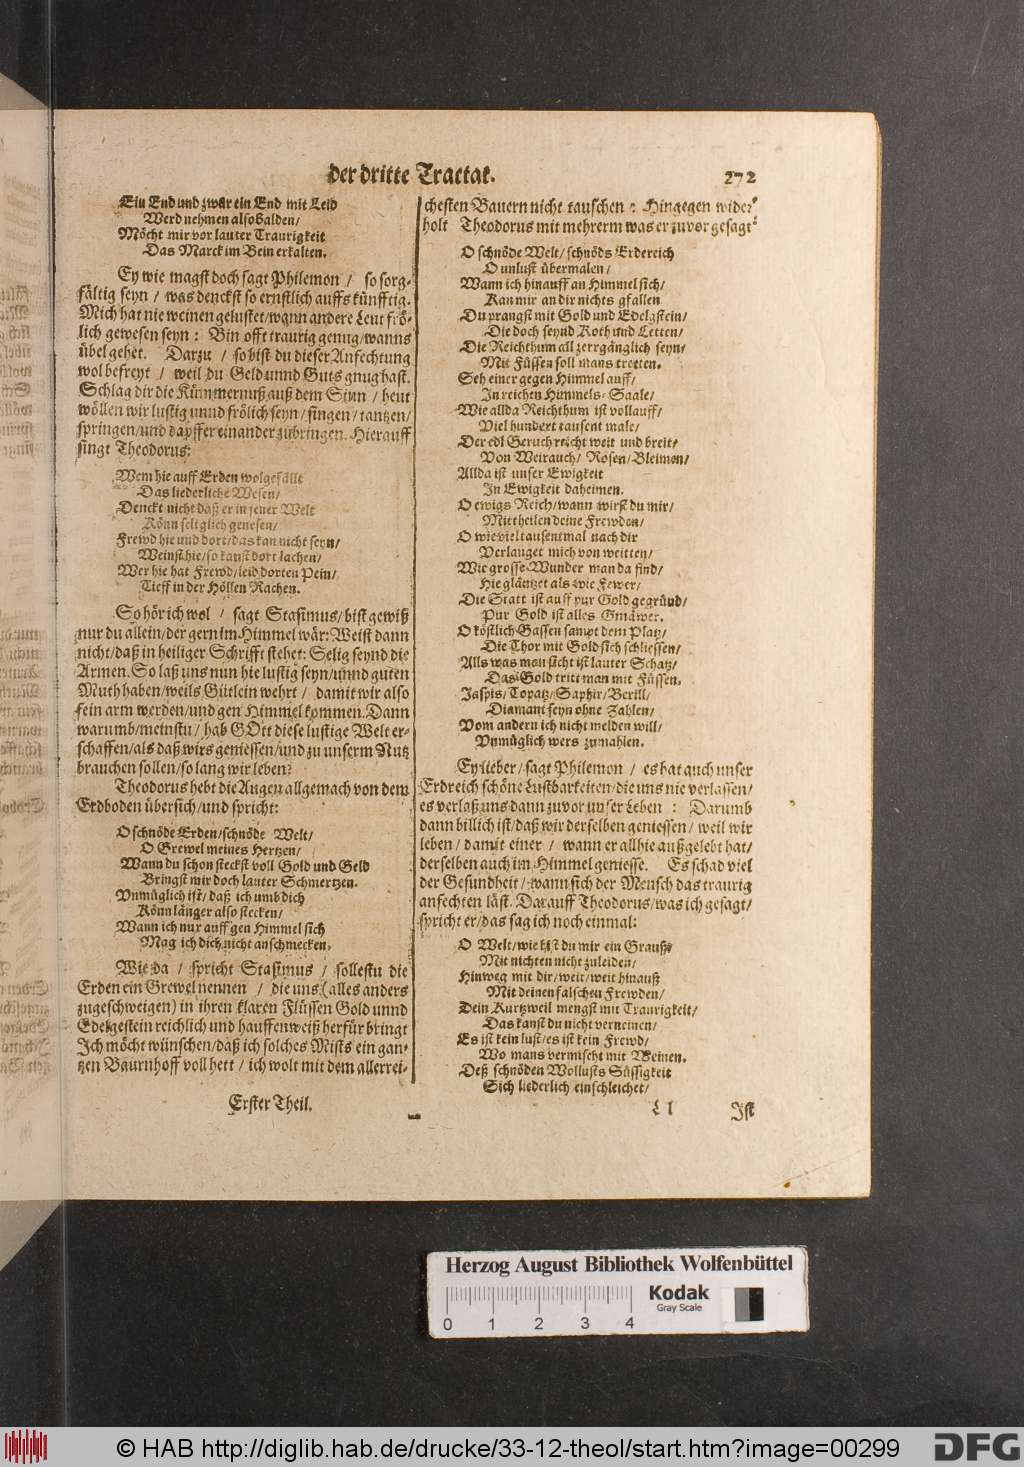 der dritte Tractat. 272
Ein End und zwar ein End mit Leid
Werd nehmen also balden/
Möcht mir vor lauter Traurigkeit
Das Marck im Bein erkalten.
Ey wie magst doch sagt Philemon / so sorg-
fältig seyn / was denckst so ernstlich auffs künfftig.
Mich hat nie weinen gelustet/wann andere Leut frö-
lich gewesen seyn : Bin offt traurig genug/wanns
übel gehet. Darzu / so bist du dieser Anfechtung
wol befreyt / weil du Geld unnd Guts gnug hast.
Schlag dir die Kümmernuß auß dem Sinn / heut
wöllen wir lustig unnd frölich seyn/singen/tantzen/
springen/und dapffer einander zubringen. Hierauff
singt Theodorus:
Wem hie auff Erden wolgefällt
Das liederliche Wesen/
Denckt nicht daß er in jener Welt
Könn seliglich genesen/
Frewd hie und dort/das kan nicht seyn/
Weinst hie/so kanst dort lachen/
Wer hie hat Frewd/leid dorten Pein/
Tieff in der Höllen Rachen.
So hör ich wol / sagt Stasimus/bist gewiß
nur du allein/der gern im Himmel wär: Weist dann
nicht/daß in heiliger Schrifft stehet: Selig seynd die
Armen. So laß uns nun hie lustig seyn/unnd guten
Muth haben/weils Gütlein wehrt / damit wir also
fein arm werden/und gen Himmel kommen. Dann
warumb/meinstu/hab GOtt diese lustige Welt er-
schaffen/als daß wirs geniessen/und zu unserm Nutz
brauchen sollen/so lang wir leben?
Theodorus hebt die Augen allgemach von dem
Erdboden übersich/und spricht:
O schnöde Erden/schnöde Welt/
O Grewel meines Hertzen/
Wann du schon steckst voll Gold und Geld
Bringst mir doch lauter Schmertzen.
Vnmüglich ist/ daß ich umb dich
Könn länger also stecken/
Wann ich nur auff gen Himmel sich
Mag ich dich nicht anschmecken.
Wie da / spricht Stasimus / sollestu die
Erden ein Grewel nennen / die uns (alles anders
zugeschweigen) in ihren klaren Flüssen Gold unnd
Edelgestein reichlich und hauffenweiß herfür bringt
Ich möcht wünschen/daß ich solches Mists ein gan-
tzen Baurnhoff voll hett / ich wolt mit dem allerrei-
chesten Bauern nicht tauschen : Hingegen wider-
holt Theodorus mit mehrerm was er zuvor gesagt
O schnöde Welt/schnöds Erdereich
O unlust übermalen/
Wann ich hinauff an Himmel sich/
Kan mir an dir nichts gfallen
Du prangst mit Gold und Edelgstein/
Die doch seynd Koth und Letten/
Die Reichthum all zerrgänglich seyn/
Mit Füssen soll mans tretten.
Seh einer gegen Himmel auff/
In reichen Himmels-Saale/
Wie allda Reichthum ist vollauff/
Viel hundert tausent male/
Der edl Geruch reicht weit und breit/
Von Weirauch/ Rosen/Bleimen/
Allda ist unser Ewigkeit
In Ewigkeit daheimen.
O ewigs Reich/wann wirst du mir/
Mittheilen deine Frewden/
O wie viel tausentmal nach dir
Verlanget mich von weitten/
Wie grosse Wunder man da find/
Hie gläntzet als wie Fewer/
Die Statt ist auff pur Gold gegründ/
Pur Gold ist alles Gmäwer.
O köstlich Gassen sampt dem Platz/
Die Thor mit Gold sich schliessen/
Alls was man sicht ist lauter Schatz/
Das Gold tritt man mit Füssen.
Jaspis/Topatz/Saphir/Berill/
Diamant seyn ohne Zahlen/
Vom andern ich nicht melden will/
Vnmüglich wers zumahlen.
Ey lieber/sagt Philemon / es hat auch unser
Erdreich schöne Lustbarkeiten/die uns nie verlassen/
es verlaß uns dann zuvor unser Leben : Darumb
dann billich ist/daß wir derselben geniessen / weil wir
leben / damit einer / wann er allhie außgelebt hat/
derselben auch im Himmel geniesse. Es schad viel
der Gesundheit/wann sich der Mensch das traurig
anfechten läst. Darauff Theodorus/was ich gesagt/
spricht er/das sag ich noch einmal:
O Welt/wie bist du mir ein Grauß/
Mit nichten nicht zuleiden/
Hinweg mit dir/weit/weit hinauß
Mit deinen falschen Frewden/
Dein Kurtzweil mengst mit Traurigkeit/
Das kanst du nicht verneinen/
Es ist kein lust/es ist kein Frewd/
Wo mans vermischt mit Weinen.
Deß schnöden Wollusts Süssigkeit
Sich liederlich einschleichet/
Erster Theil. Ll Ist
Herzog August Bibliothek Wolfenbüttel
Kodak
Gray Scale
0 1 2 3 4
© HAB http://diglib.hab.de/drucke/33-12-theol/start.htm?image=00299
DFG